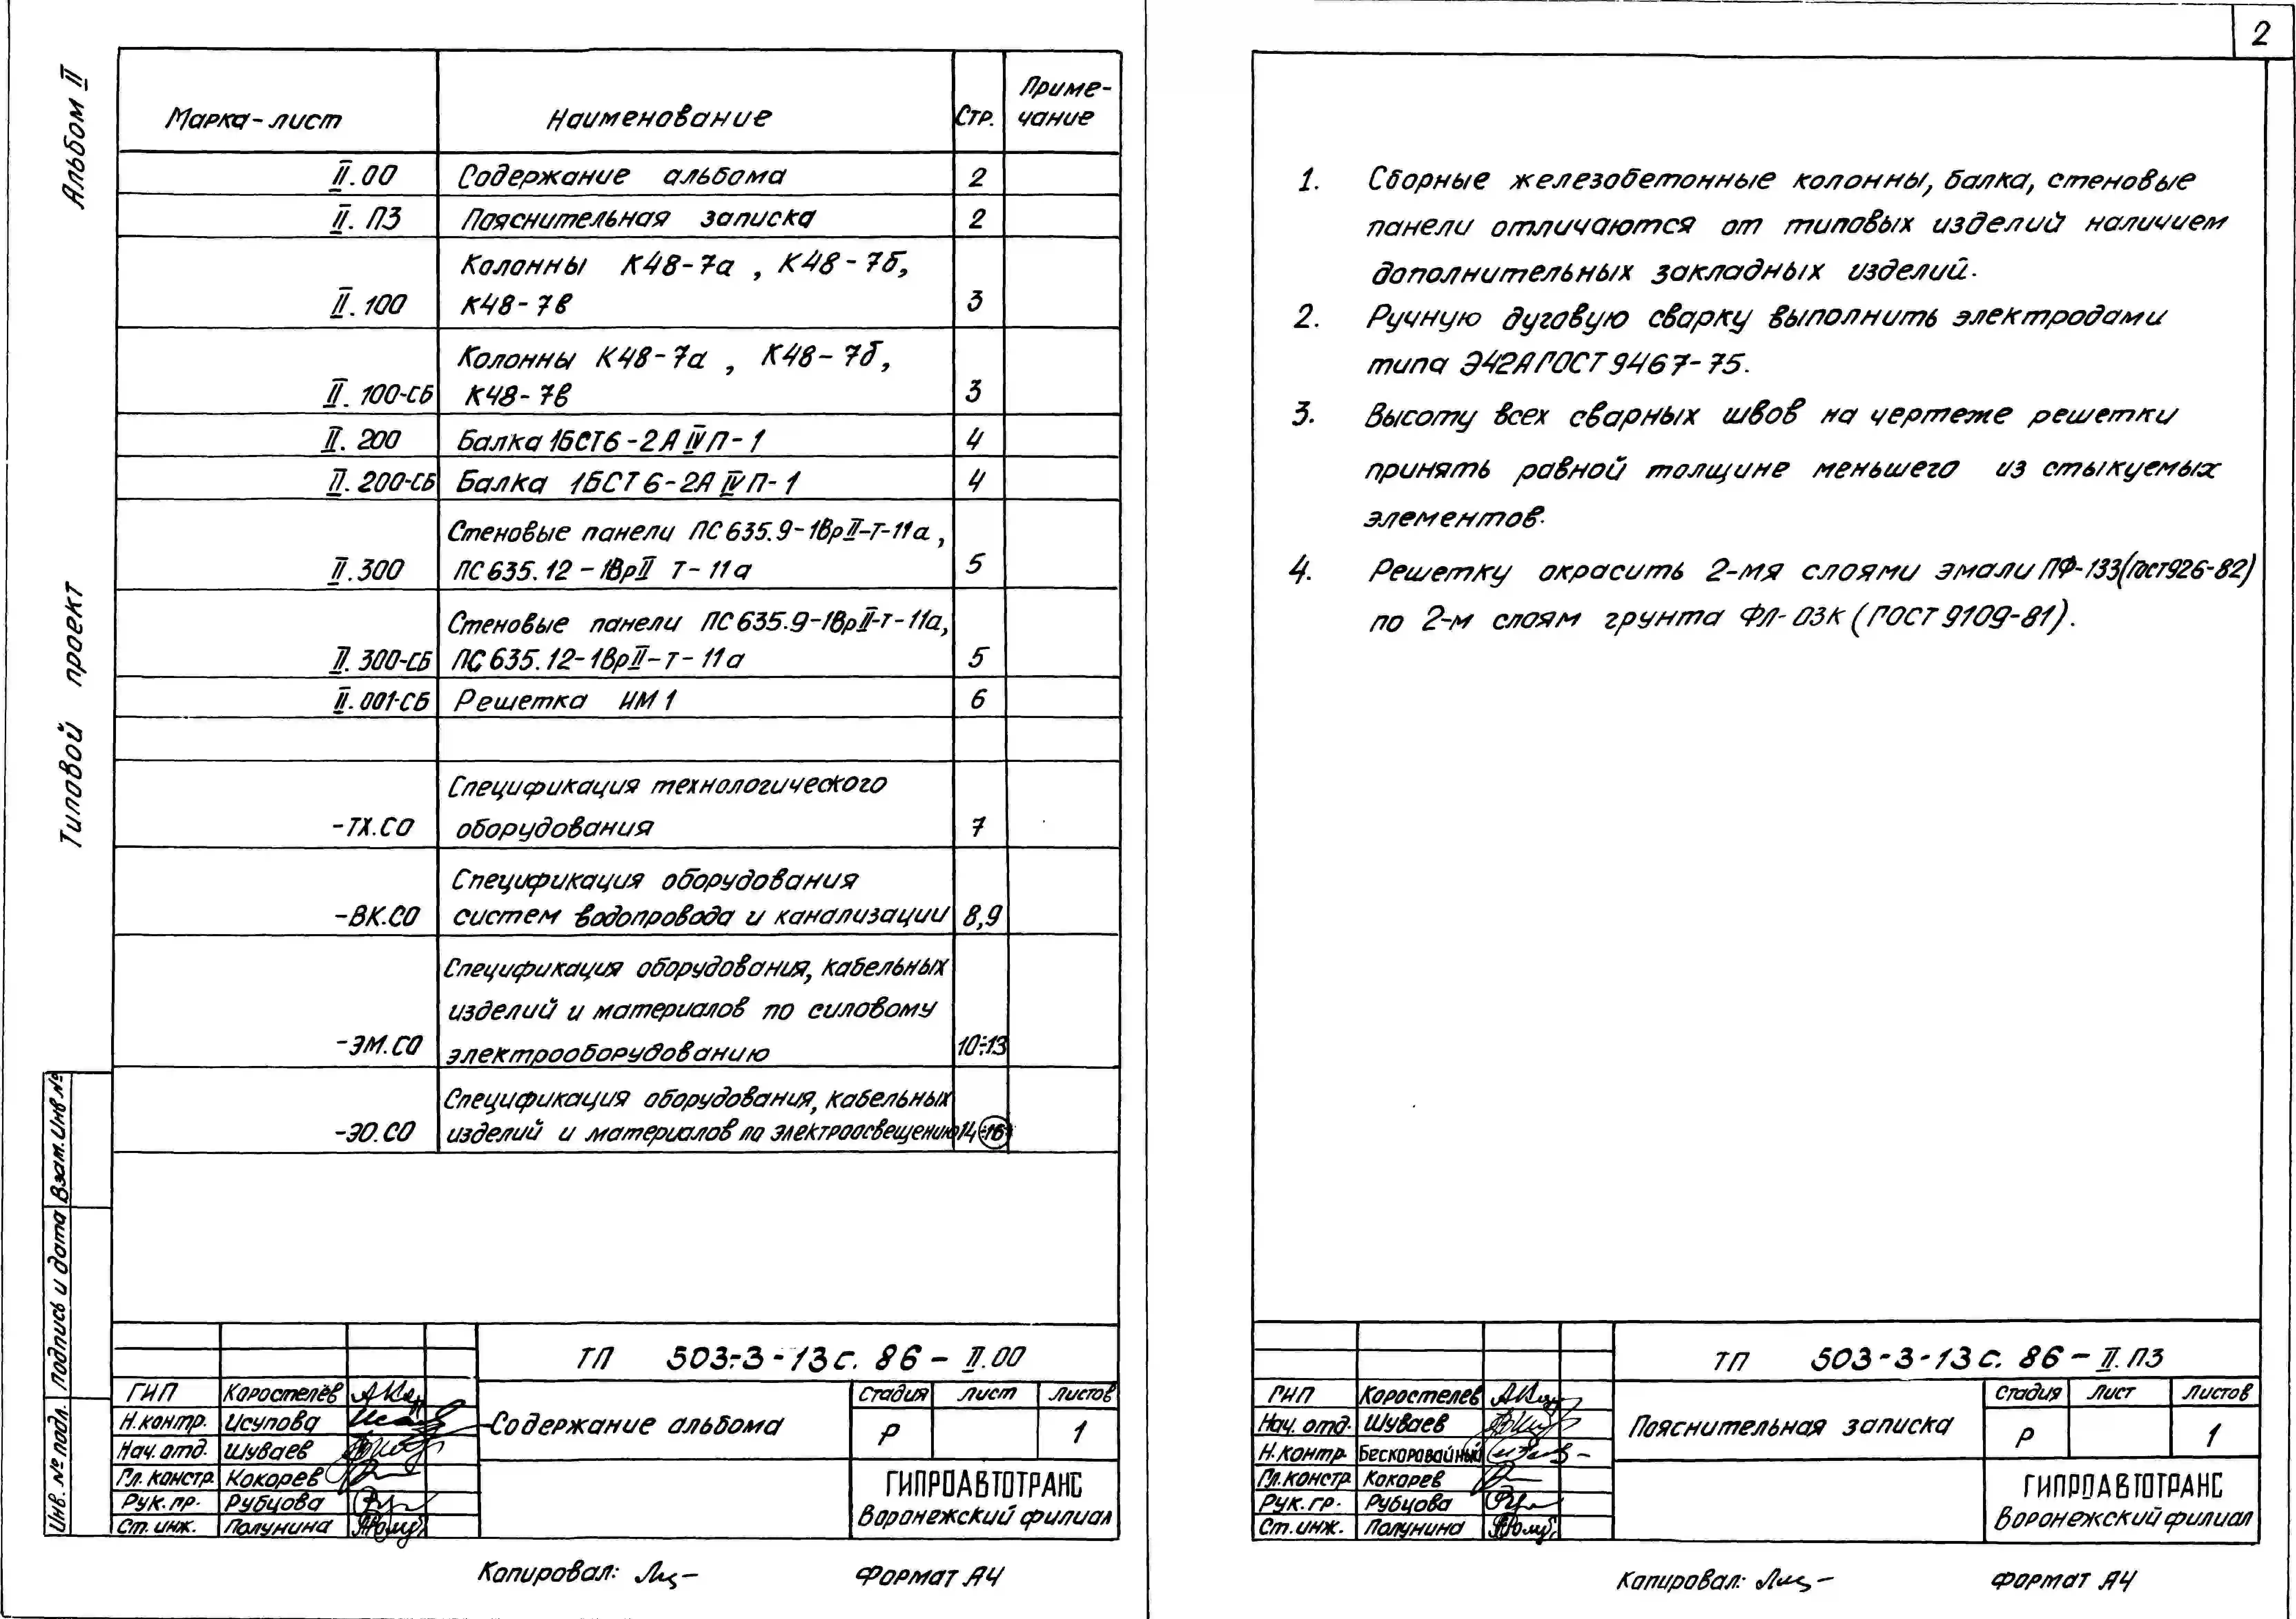 Альбом II
Типовой проект
Марка-лист Наименование Стр. Приме-
чание
II.00 Содержание альбома 2
II. ПЗ Пояснительная записка 2
Колонны К48-7а , К48-7б,
II. 100 К48-7в 3
Колонны К48-7а , К48-7б,
II. 100-СБ К48-7в 3
II. 200 Балка 1БСТ6-2АIVП-1 4
II. 200-СБ Балка 1БСТ6-2АIVП-1 4
Стеновые панели ПС635.9-1ВрII-Т-11а,
II.300 ПС635.12-1ВрII Т-11а 5
Стеновые панели ПС635.9-1ВрII-Т-11а,
II. 300-СБ ПС635.12-1ВрII-Т-11а 5
II. 001-СБ Решетка ИМ1 6
Спецификация технологического
-ТХ.СО оборудования 7
Спецификация оборудования
-ВК.СО систем водопровода и канализации 8,9
Спецификация оборудования, кабельных
изделий и материалов по силовому
-ЭМ.СО электрооборудованию 10÷13
Спецификация оборудования, кабельных
-ЭО.СО изделий и материалов по электроосвещению 14÷16
Взам.Инв.№
Подпись и дата
Инв. № подл.
ТП 503-3-13с. 86 - II.00
ГИП Коростелёв
Н.контр. Исупова
Нач. отд. Шуваев
Гл. констр. Кокорев
Рук. гр. Рубцова
Ст. инж. Полунина
Содержание альбома
Стадия Лист Листов
Р 1
ГИПРОАВТОТРАНС
Воронежский филиал
Копировал: Формат А4
2
1. Сборные железобетонные колонны, балка, стеновые
панели отличаются от типовых изделий наличием
дополнительных закладных изделий.
2. Ручную дуговую сварку выполнить электродами
типа Э42А ГОСТ 9467-75.
3. Высоту всех сварных швов на чертеже решетки
принять равной толщине меньшего из стыкуемых
элементов.
4. Решетку окрасить 2-мя слоями эмали ПФ-133(ГОСТ926-82)
по 2-м слоям грунта ФЛ-03К (ГОСТ 9109-81).
ТП 503-3-13с. 86 - II. ПЗ
ГИП Коростелев
Нач. отд. Шуваев
Н.контр. Бескоровайный
Гл.констр. Кокорев
Рук. гр. Рубцова
Ст. инж. Полунина
Пояснительная записка
Стадия Лист Листов
Р 1
ГИПРОАВТОТРАНС
Воронежский филиал
Копировал: Формат А4